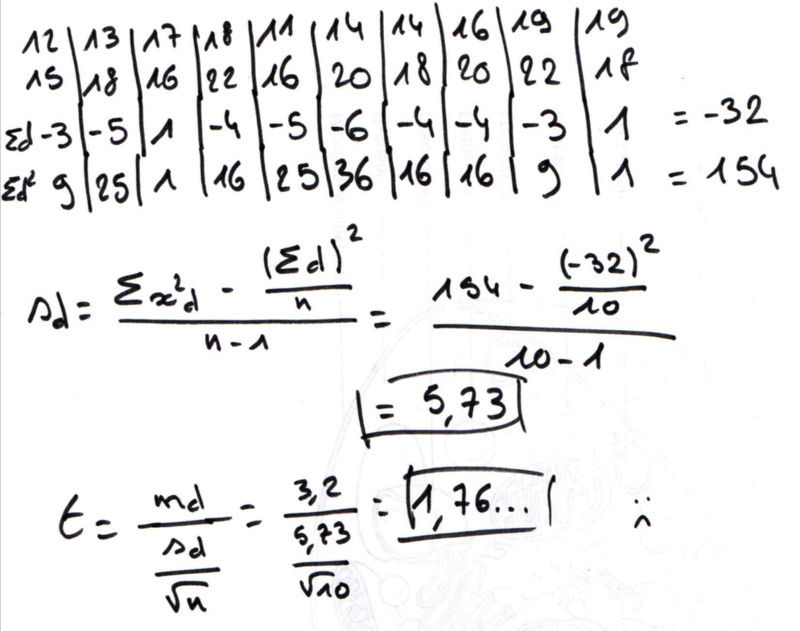 12 | 13 | 17 | 18 | 11 | 14 | 14 | 16 | 19 | 19
15 | 18 | 16 | 22 | 16 | 20 | 18 | 20 | 22 | 18
Σd -3 | -5 | 1 | -4 | -5 | -6 | -4 | -4 | -3 | 1 = -32
Σd² 9 | 25 | 1 | 16 | 25 | 36 | 16 | 16 | 9 | 1 = 154
sd = (Σx²d - (Σd)²/n)/(n-1) = (154 - (-32)²/10)/(10-1)
= 5,73
t = md/(sd/√n) = 3,2/(5,73/√10) = 1,76... :(